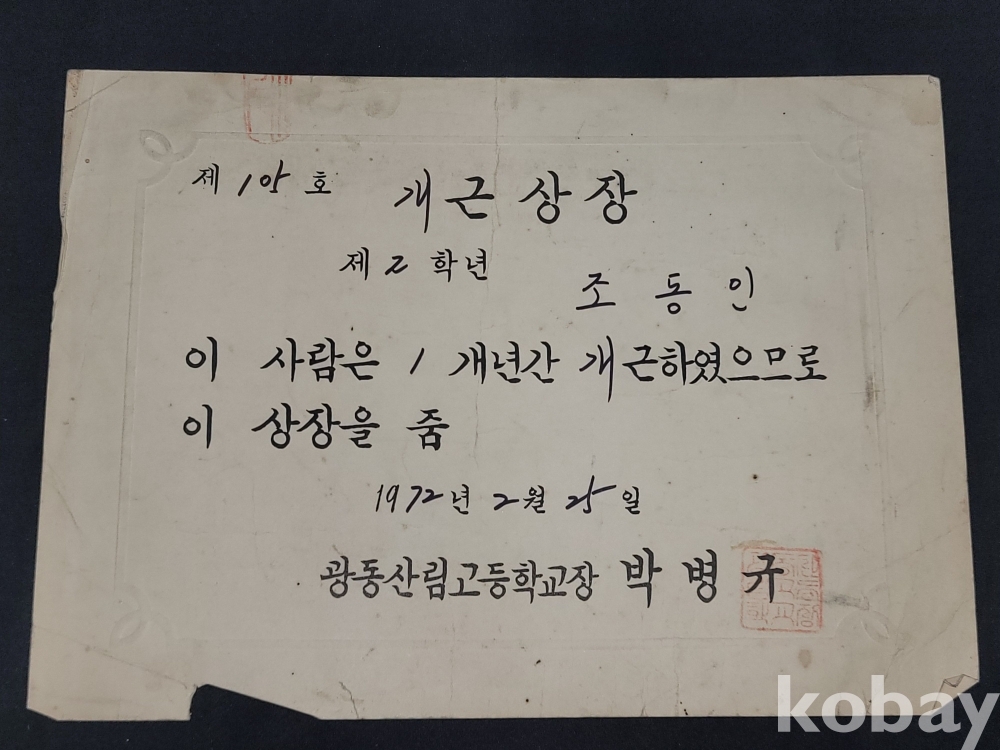 제 105 호
개근상장
제 2 학년
조 동 인
이 사람은 1 개년간 개근하였으므로
이 상장을 줌
1972년 2월 25일
광동산림고등학교장 박 병 규
kobay